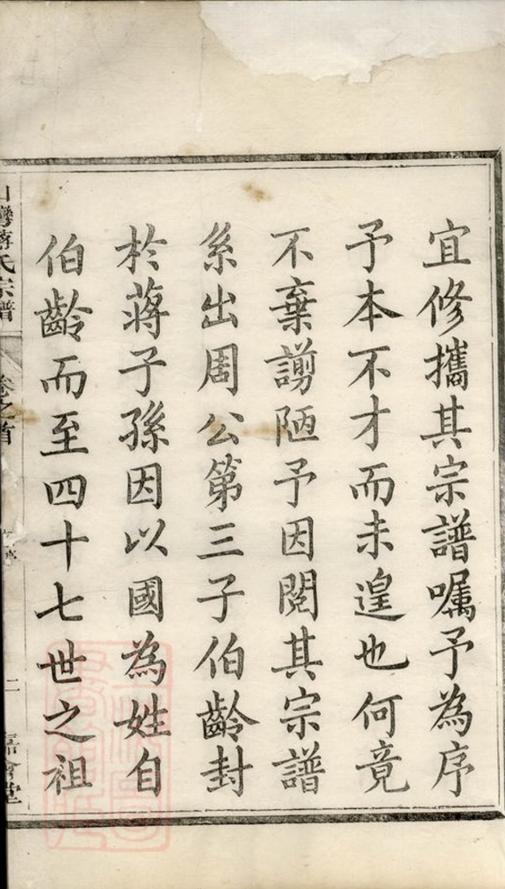 宜修攜其宗譜嘱予為序
予本不才而未遑也何竟
不棄謭陋予因閱其宗譜
系出周公第三子伯齡封
於蔣子孫因以國為姓自
伯齡而至四十七世之祖
灣蔣氏宗譜
卷之首
二
會堂